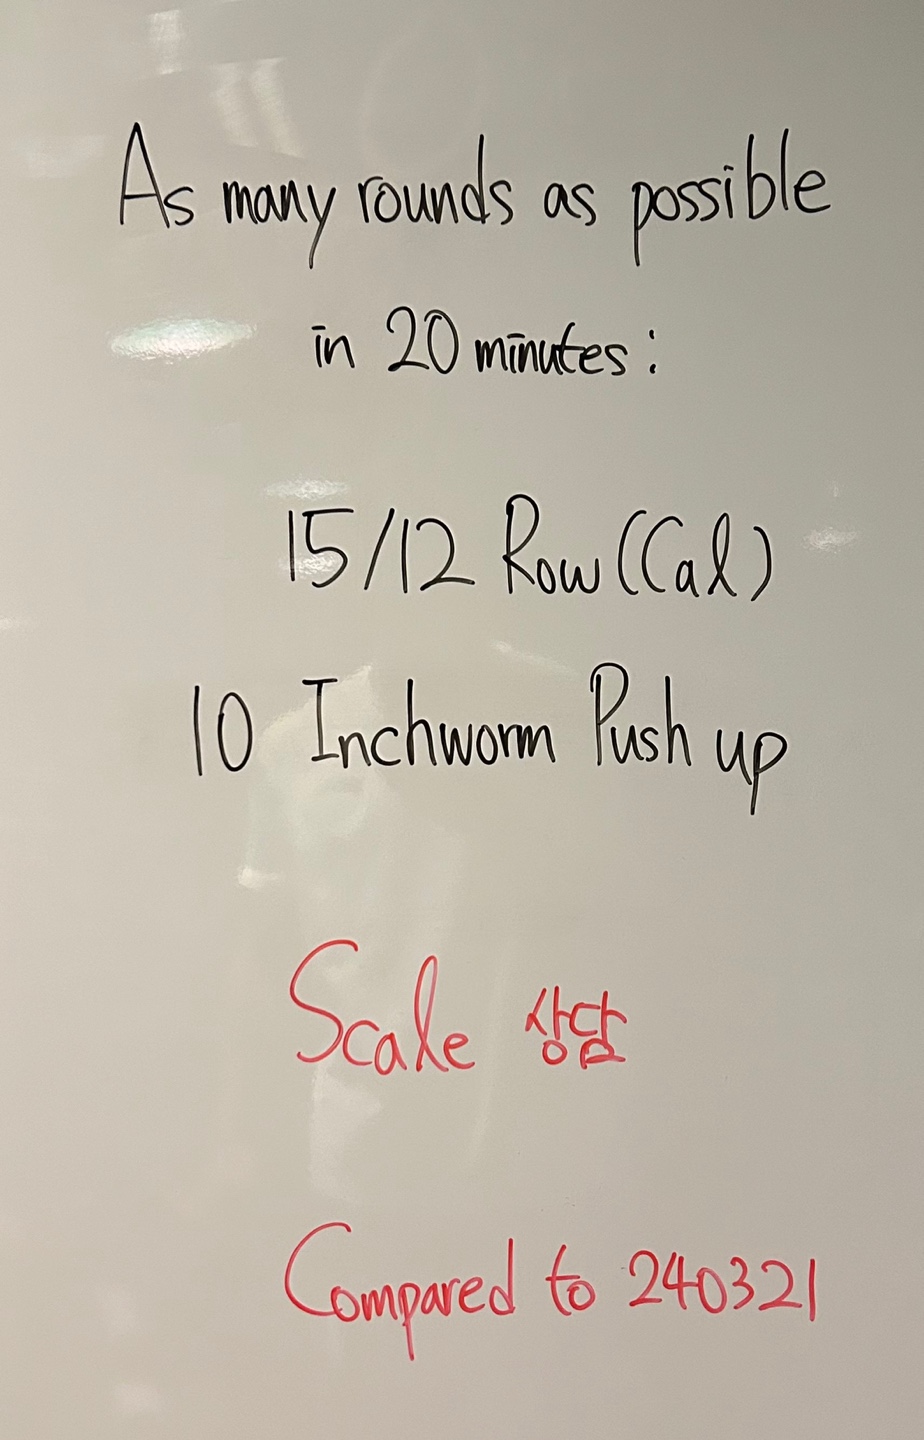 As many rounds as possible
in 20 minutes:
15/12 Row (Cal)
10 Inchworm Push up
Scale 상담
Compared to 240321